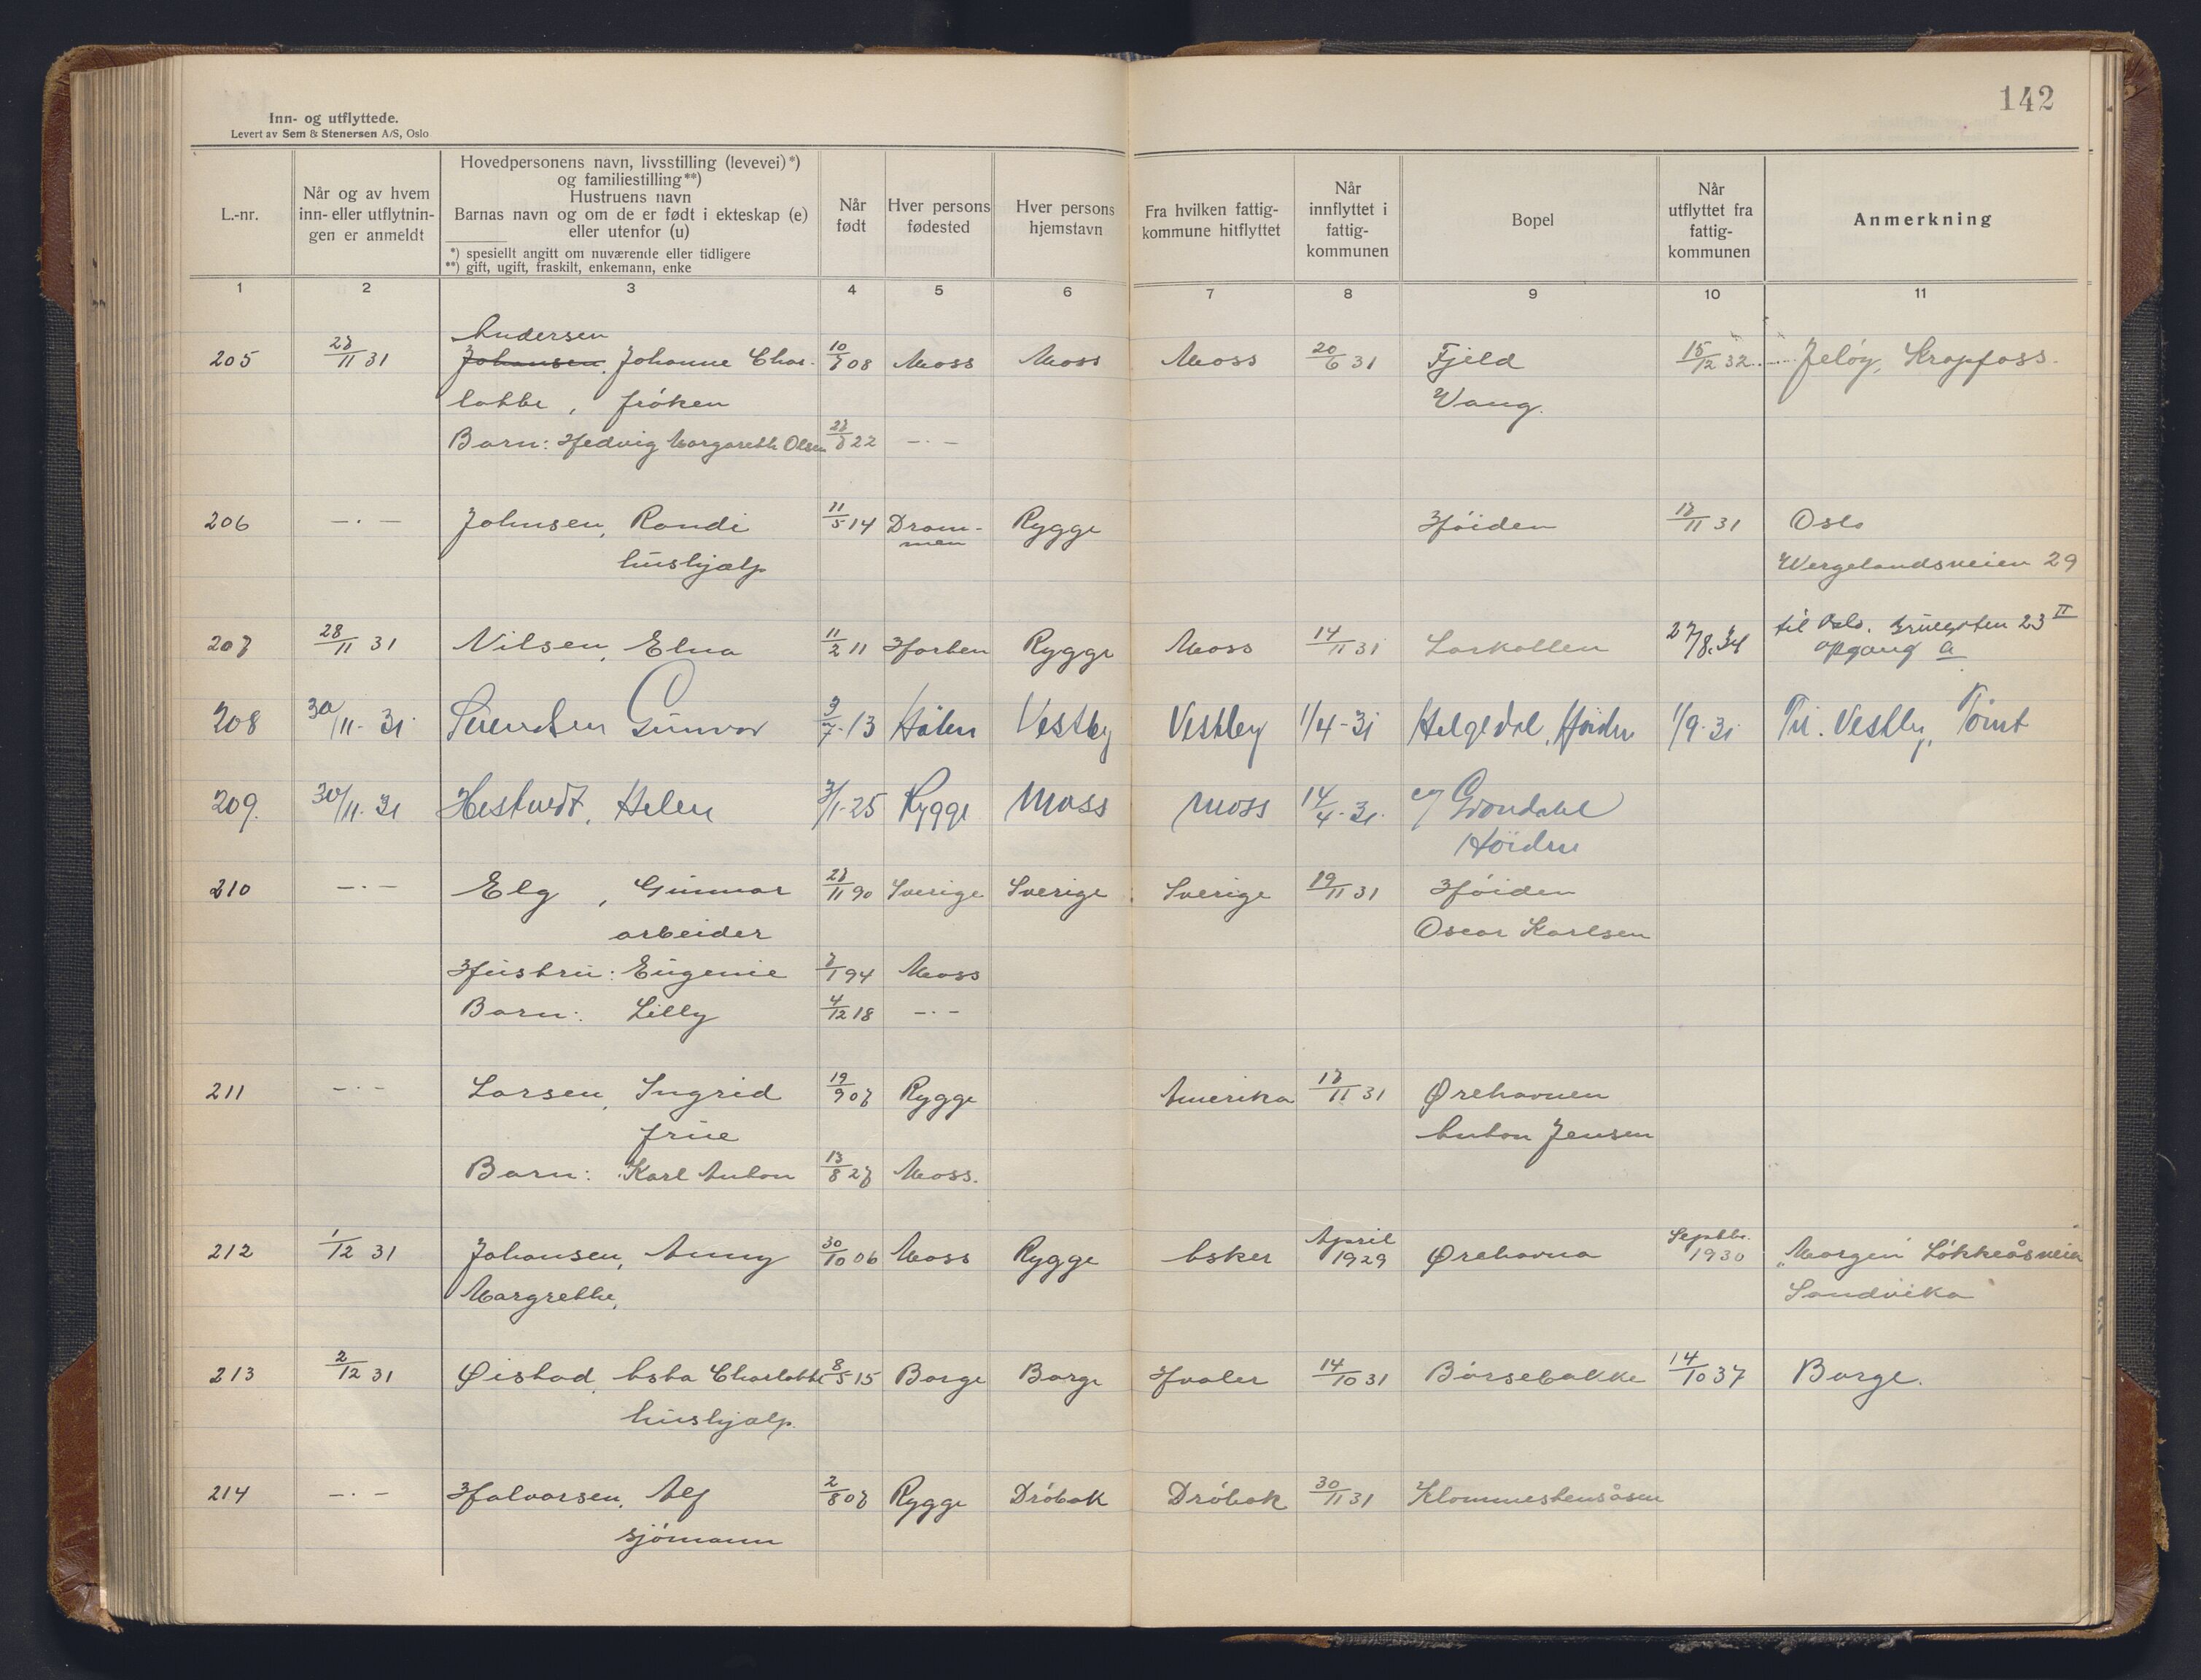 142
Inn- og utflyttede.
Levert av Sem & Stenersen A/S, Oslo
L.-nr.
Når og av hvem
inn- eller utflytnin-
gen er anmeldt
Hovedpersonens navn, livsstilling (levevei)*)
og familiestilling**)
Hustruens navn
Barnas navn og om de er født i ekteskap (e)
eller utenfor (u)
*) spesielt angitt om nuværende eller tidligere
**) gift, ugift, fraskilt, enkemann, enke
Når
født
Hver persons
fødested
Hver persons
hjemstavn
Fra hvilken fattig-
kommune hitflyttet
Når
innflyttet i
fattig-
kommunen
Bopel
Når
utflyttet fra
fattig-
kommunen
Anmerkning
1 2 3 4 5 6 7 8 9 10 11
Andersen
205 27/11 31 Johansen, Johanne Char- 10/7 08 Moss Moss Moss 20/6 31 Fjeld 15/12 32 Jeløy, Krapfoss.
lotte, frøken Vang.
Barn: Hedvig Margareth Olsen 22 -.-
206 -.- Johnsen, Randi 11/5 14 Dram- Rygge Høiden 17/11 31 Oslo
men
hushjælp Wergelandsveien 29
207 28/11 31 Nilsen, Elna 11/2 11 Horten Rygge Moss 14/11 31 Larkollen 27/8.34 til Oslo. 23 II
opgang a
208 30/11-31 Svendsen Gunvor 9/7-13 Hölen Vestby Vestby 1/4-31 Helgedal, Høiden 1/9-31 Til. Vestby,
209. 30/11-31 Hestvedt, Helen 3/1-25 Rygge Moss Moss 14/4-31. Grøndahl
Höiden
210 -.- Elg, Gunnar 27/11 90 Sverige Sverige Sverige 19/11 31 Høiden
arbeider Oscar Karlsen
Hustru: Eugenie 7/1 94 Moss
Barn: Lilly 4/12 18 -.-
211 -.- Larsen, Ingrid 19/9 07 Rygge Amerika 17/11 31 Ørehavnen
frue Anton Jensen
Barn: Karl Anton 13/8 27 Moss.
212 1/12 31 Johansen, Anny 30/10 06 Moss Rygge Asker April 1929 Ørehavna Septbr. 1930 "Margen" Løkkeåsveien
Margrethe, Sandvika
213 2/12 31 Øistad, Asta Charlotte 8/5 15 Borge Borge Hvaler 14/10 31 Børsebakke 14/10 37 Borge.
hushjælp.
214 -.- Halvorsen, Alf 2/8 07 Rygge Drøbak Drøbak 30/11 31 Klommestensåsen
sjømann